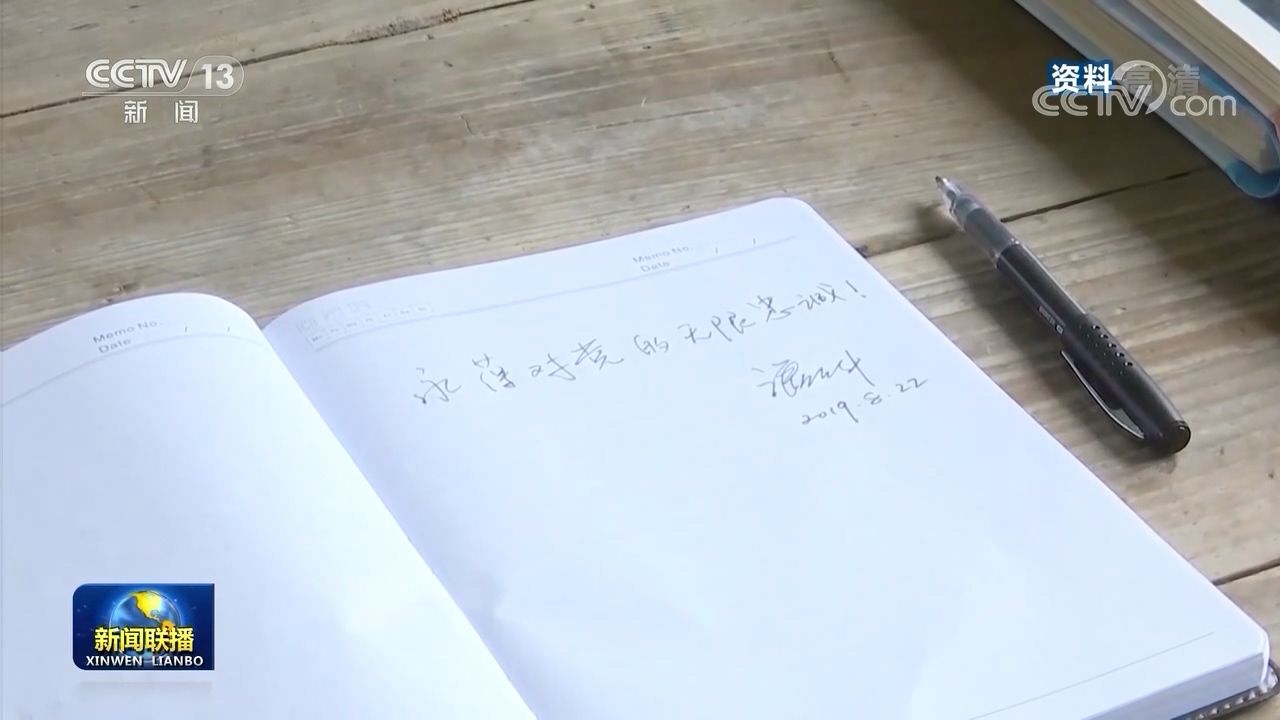 CCTV 13
新闻
资料
高清
CCTV.com
Memo No.
Date / /
Memo No.
Date / /
永葆对党的无限忠诚！
2019.8.22
新闻联播
XINWEN LIANBO